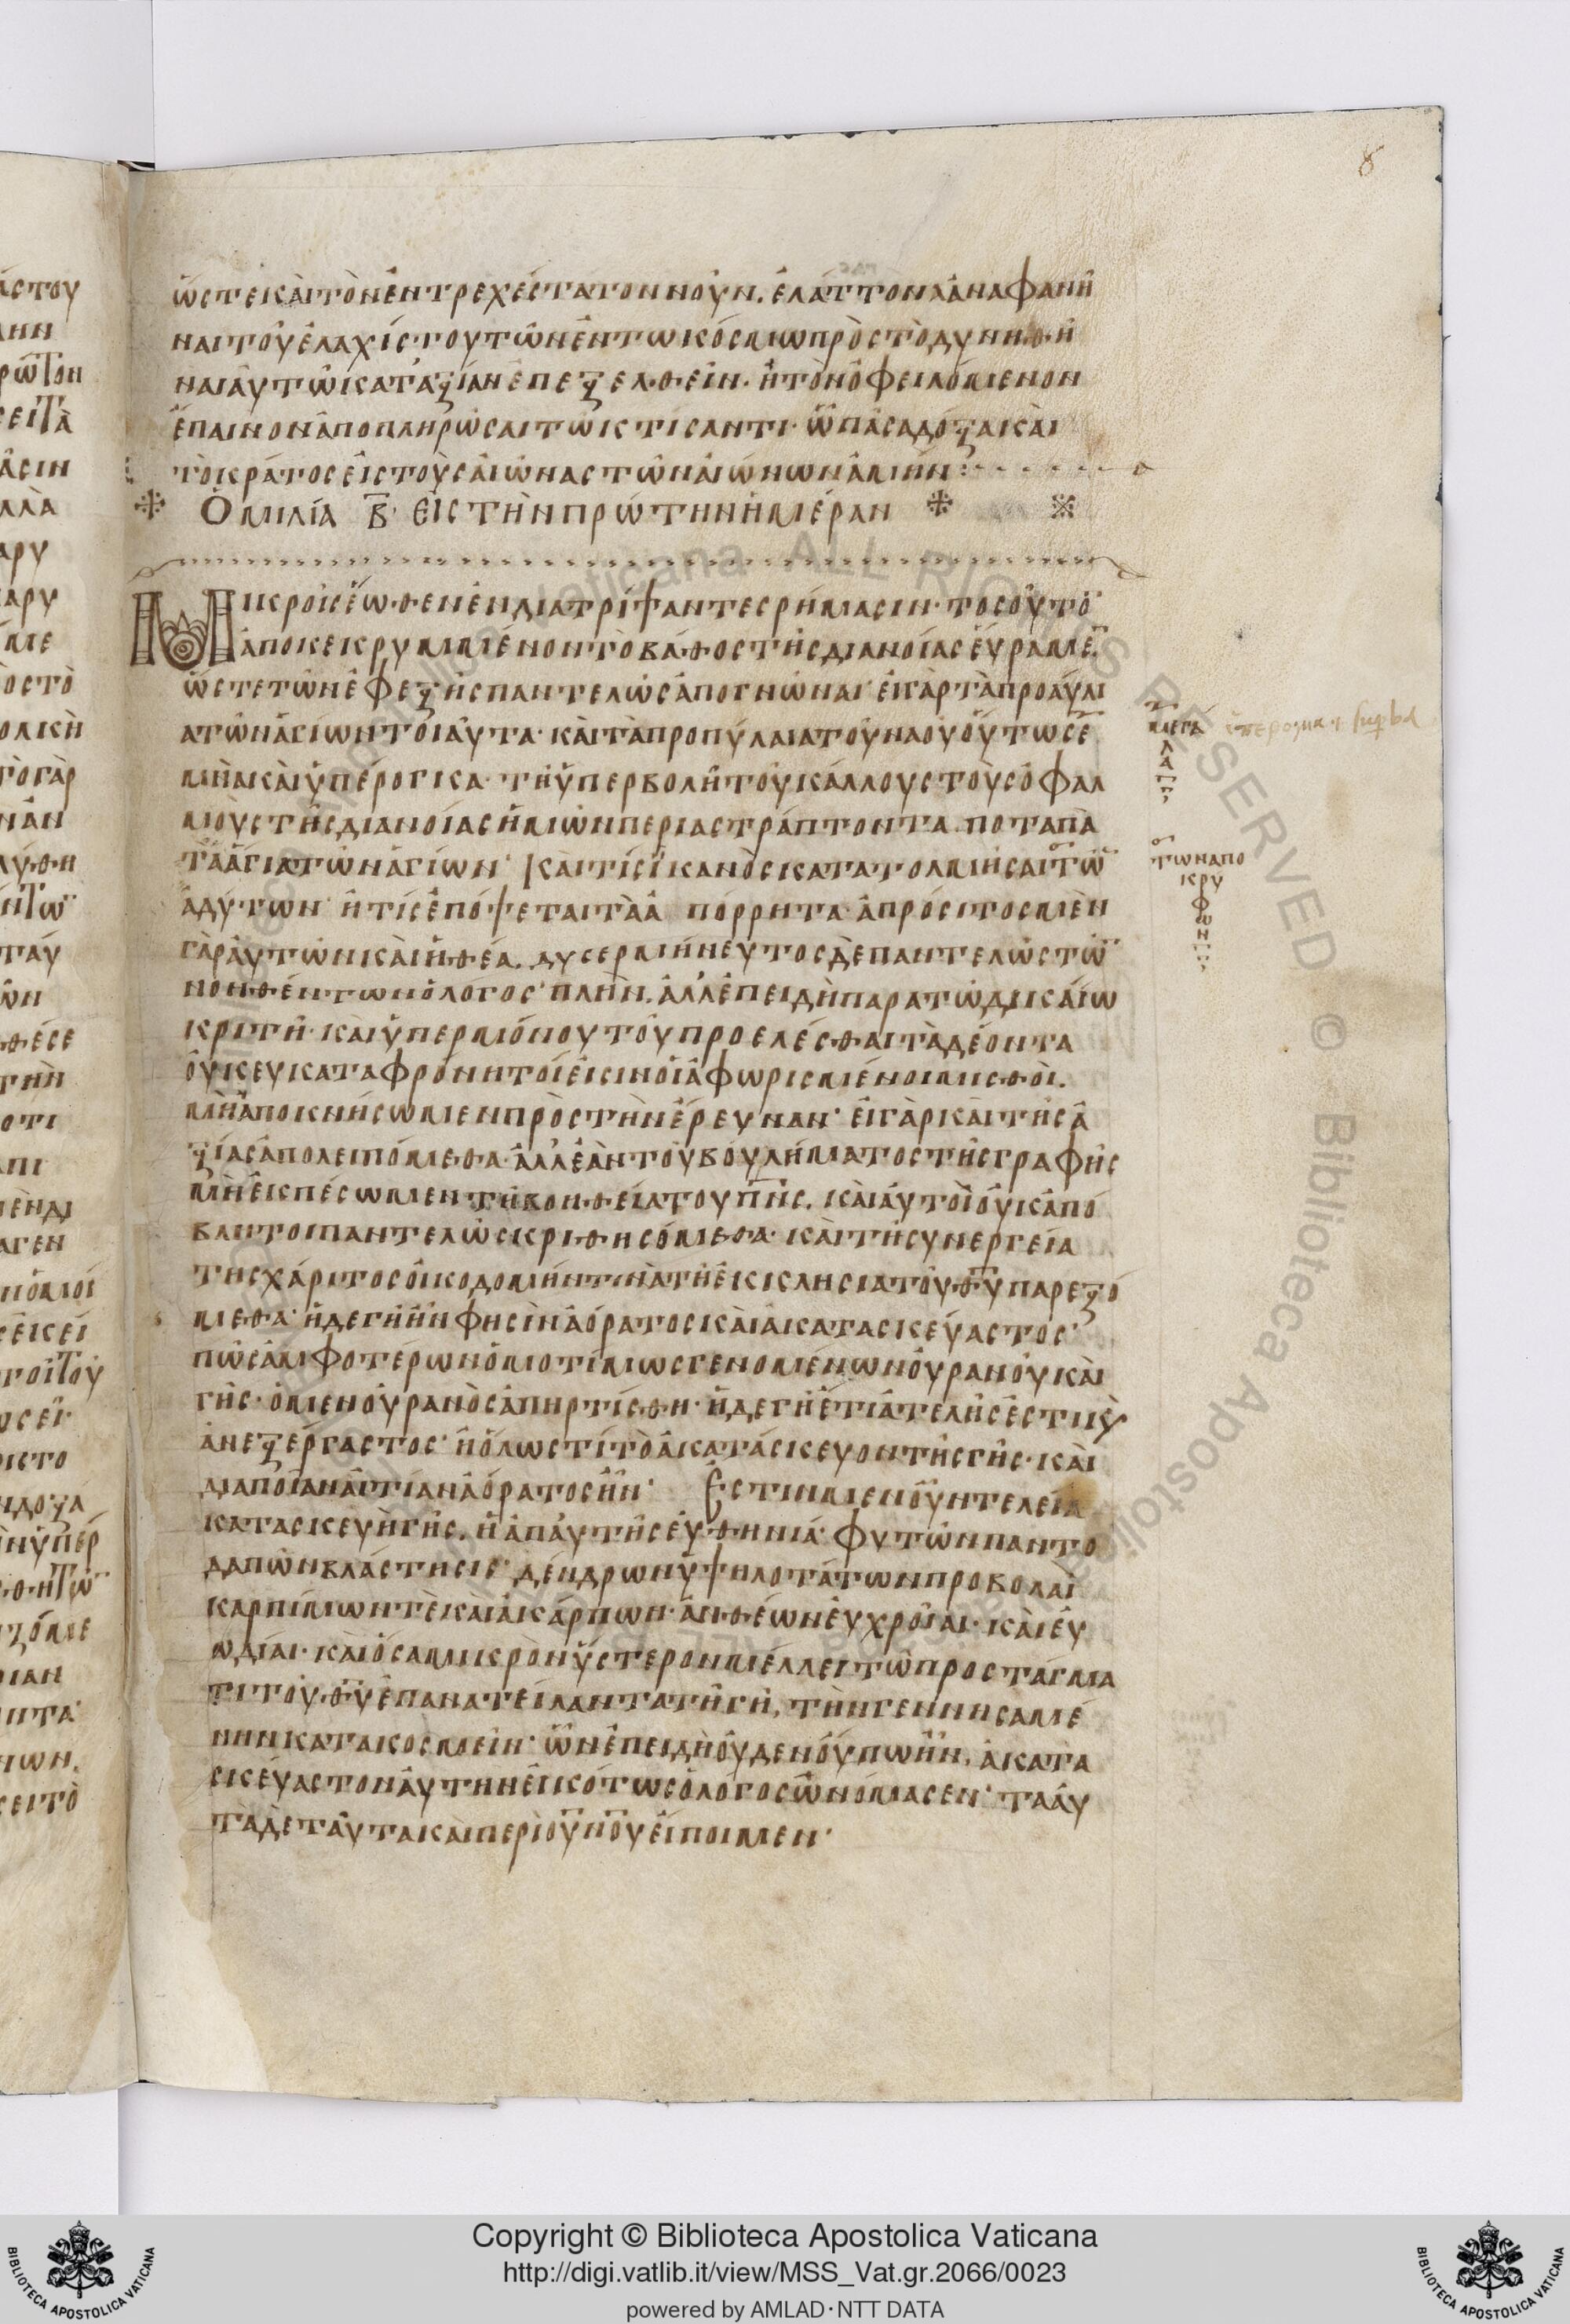 ὥστε καὶ τὸν ἐντρεχέστατον νοῦν. ἐλάττονα ἀναφανῆ
ναι τοῦ ἐλαχίστου τῶν ἐν τω κόσμω πρὸς τὸ δυνηθῆ
ναι αὐτῶ κατ' ἀξίαν ἐπεξελθεῖν. ἢ τὸν ὀφειλόμενον
ἔπαινον ἀποπληρῶσαι τῶ κτίσαντι· ὧ πᾶσα δόξα καὶ
τὸ κράτος εἰς τοὺς αἰῶνας τῶν αἰώνων ἀμήν:
Ὁμιλία Β̅· εἰς τὴν πρώτην ἡμέραν
Μικροῖς ἕωθεν ἐνδιατρίψαντες ρήμασιν· τοσοῦτο̅
ἀποκεκρυμμένον τὸ βάθος τῆς διανοίας εὕραμε̅.
ὥστε τῶν ἐφεξῆς παντελῶς ἀπογνῶναι· εἰ γὰρ τὰ προαύλι
α τῶν ἁγίων τοιαῦτα· καὶ τὰ προπύλαια τοῦ ναοῦ οὕτω σε
μνὰ καὶ ὑπέρογκα· τῆ ὑπερβολῆ τοῦ κάλλους τοὺς ὀφθαλ
μοὺς τῆς διανοίας ἡμῶν περιαστράπτοντα. ποταπὰ
τὰ ἅγια τῶν ἁγίων· καὶ τίς ἱκανὸς κατατολμῆσαι τῶ̅
ἀδύτων· ἢ τίς ἐπόψεται τὰ ἀπόρρητα· ἀπρόσιτος μὲν
γὰρ αὐτῶν καὶ ἡ θέα. δυσερμήνευτος δὲ παντελῶς τῶ̅
νοηθέντων ὁ λόγος· πλήν. ἀλλ' ἐπειδὴ παρα τῶ δικαίω
κριτῆ· καὶ ὑπερ μόνου τοῦ προελέσθαι τὰ δέοντα
οὐκ ευκαταφρονητοί εἰσιν οἱ ἀφωρισμένοι μισθοὶ.
μὴ ἀποκνήσωμεν πρὸς τὴν ἔρευναν· εἰ γὰρ καὶ τῆς ἀ
ξίας ἀπολειπόμεθα· ἀλλ' ἐὰν τοῦ βουλήματος τῆς γραφῆς
μὴ ἐκπέσωμεν τῆ βοηθεία του π̅ν̅ς. καὶ αὐτοὶ οὐκ ἀπό
βλητοι παντελῶς κριθησόμεθα· καὶ τῆ συνεργεία
της χάριτος οἰκοδομήν τινα τῆ ἐκκλησία τοῦ θ̅υ̅ παρεξό
μεθα· ἡ δε γῆ ἦν φησὶν ἀόρατος καὶ ἀκατασκεύαστος·
πῶς ἀμφοτέρων ὁμοτίμως γενομένων οὐρανοῦ καὶ
γῆς· ὁ μεν οὐρανὸς ἀπηρτίσθη· ἡ δε γῆ ἔτι ἀτελής ἐστι κ̀
ἀνεξέργαστος· ἢ ὅλως τί τὸ ἀκατάσκευον τῆς γῆς· καὶ
δια ποίαν αἰτίαν ἀόρατος ἦν· Ἐστιν μεν οὖν τελεία
κατασκευὴ γῆς. ἡ ἀπ' αὐτῆς εὐθηνία· φυτῶν παντο
δαπῶν βλάστησις· δένδρων ὑψηλοτάτων προβολαὶ
καρπίμων τὲ καὶ ἀκάρπων· ἀνθέων εὔχροιαι· καὶ εὐ
ωδίαι· καὶ ὅσα μικρὸν ὕστερον μέλλει τῶ προστάγμα
τι τοῦ θ̅υ̅ ἐπανατείλαντα τῆ γῆ, τὴν γεννησαμέ
νην κατακοσμεῖν· ὧν ἐπειδὴ οὐδεν οὔπω ἦν, ἀκατα
σκεύαστον αὐτην εἰκότως ὁ λόγος ὠνόμασεν· τα αὐ
τὰ δὲ ταῦτα καὶ περὶ ου̅νο̅υ εἴποιμεν·
μεγά
λα
των απο
κρυ
φων
Copyright © Biblioteca Apostolica Vaticana
http://digi.vatlib.it/view/MSS_Vat.gr.2066/0023
powered by AMLAD·NTT DATA
BIBLIOTECA APOSTOLICA VATICANA
BIBLIOTECA APOSTOLICA VATICANA